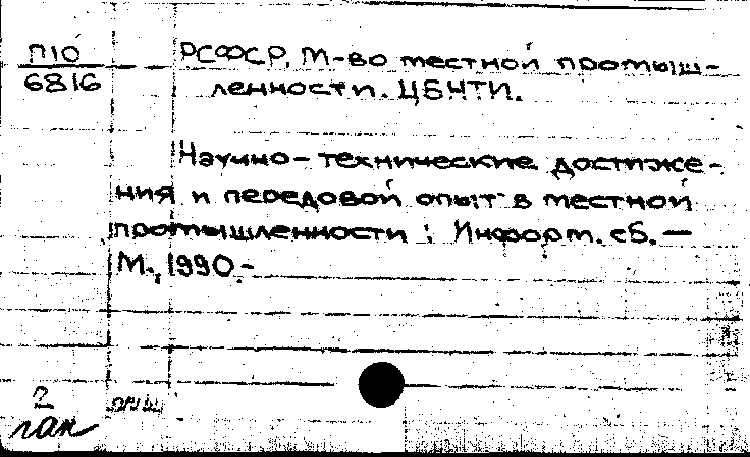 П10
6816
РСФСР. М-во местной промыш-
ленности. ЦБНТИ.
Научно-технические достиже-
ния и передовой опыт в местной
промышленности : Информ. сб. —
М., 1990.-
2